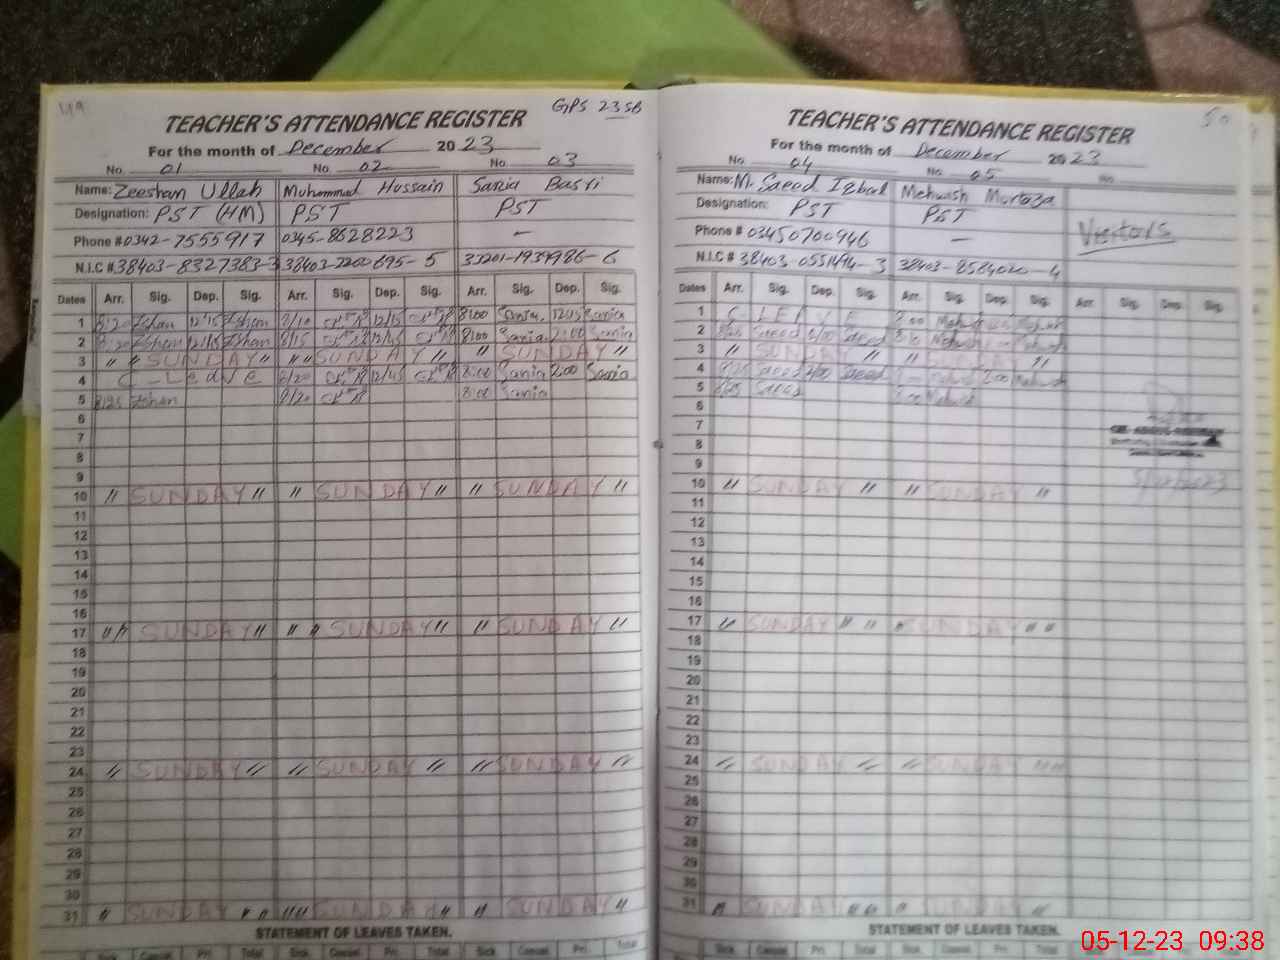 49
GPS 23 SB
TEACHER'S ATTENDANCE REGISTER
For the month of December 2023
No. 01 No. 02 No. 03
Name: Zeeshan Ullah Muhammad Hussain Sania Basri
Designation: PST (HM) PST PST
Phone # 0342-7555917 0345-8628223 —
N.I.C # 38403-8327383-3 38403-2200695-5 33201-1939986-6
Dates Arr. Sig. Dep. Sig. Arr. Sig. Dep. Sig. Arr. Sig. Dep. Sig.
1 8:20 Zshan 12:15 Zshan 8/10 12/15 8:00 Sania 12:15 Sania
2 8:20 Zshan 12:15 Zshan 8/15 12/15 8:00 Sania 2:00 Sania
3 " " SUNDAY " " " SUNDAY " " SUNDAY "
4 C-Leave 8/20 12/45 8:00 Sania 2:00 Sania
5 8:25 Zshan 8/20 8:00 Sania
6
7
8
9
10 " SUNDAY " " SUNDAY " " SUNDAY "
11
12
13
14
15
16
17 " " SUNDAY " " " SUNDAY " " SUNDAY "
18
19
20
21
22
23
24 " SUNDAY " " SUNDAY " " SUNDAY "
25
26
27
28
29
30
31 " SUNDAY " " " " SUNDAY " " SUNDAY "
STATEMENT OF LEAVES TAKEN.
Sick Casual Pri. Total Sick Casual Pri. Total Sick Casual Pri. Total
50
TEACHER'S ATTENDANCE REGISTER
For the month of December 2023
No. 04 No. 05 No.
Name: M. Saeed Iqbal Mehwish Murtaza
Designation: PST PST Visitors
Phone # 03450700946 —
N.I.C # 38403-0551494-3 38403-8584020-4
Dates Arr. Sig. Dep. Sig. Arr. Sig. Dep. Sig. Arr. Sig. Dep. Sig.
1 C-LEAVE 8:00
2 8:25 Saeed 2/00 Saeed
3 " SUNDAY " " SUNDAY "
4 8:25 Saeed 2/00 Saeed 2:00
5 8:25 Saeed
6
7
8
9
10 " SUNDAY " " SUNDAY "
11
12
13
14
15
16
17 " SUNDAY " " " SUNDAY " "
18
19
20
21
22
23
24 " SUNDAY " " SUNDAY " "
25
26
27
28
29
30
31 " SUNDAY " " " SUNDAY "
STATEMENT OF LEAVES TAKEN.
Sick Casual Pri. Total Sick Casual Pri. Total
05-12-23 09:38